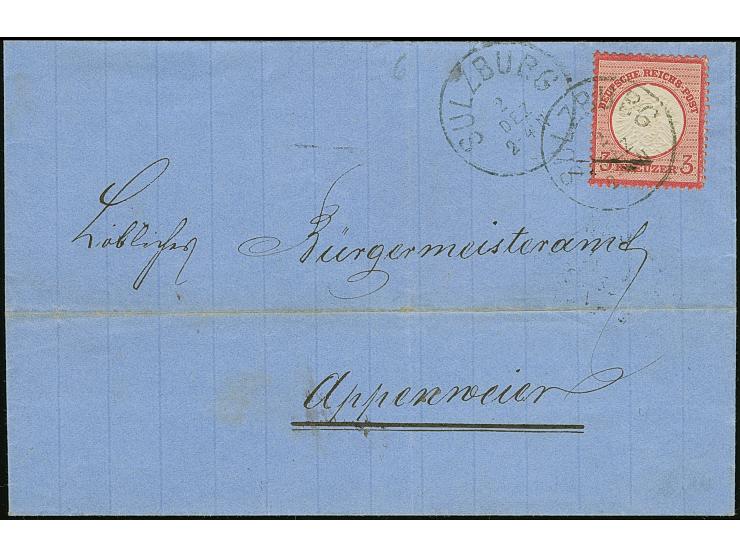 6
SULZBURG
2
DEZ
2-4N
DEUTSCHE REICHS-POST
3 KREUZER 3
SULZBURG
Löbliches Bürgermeisteramt
Appenweier